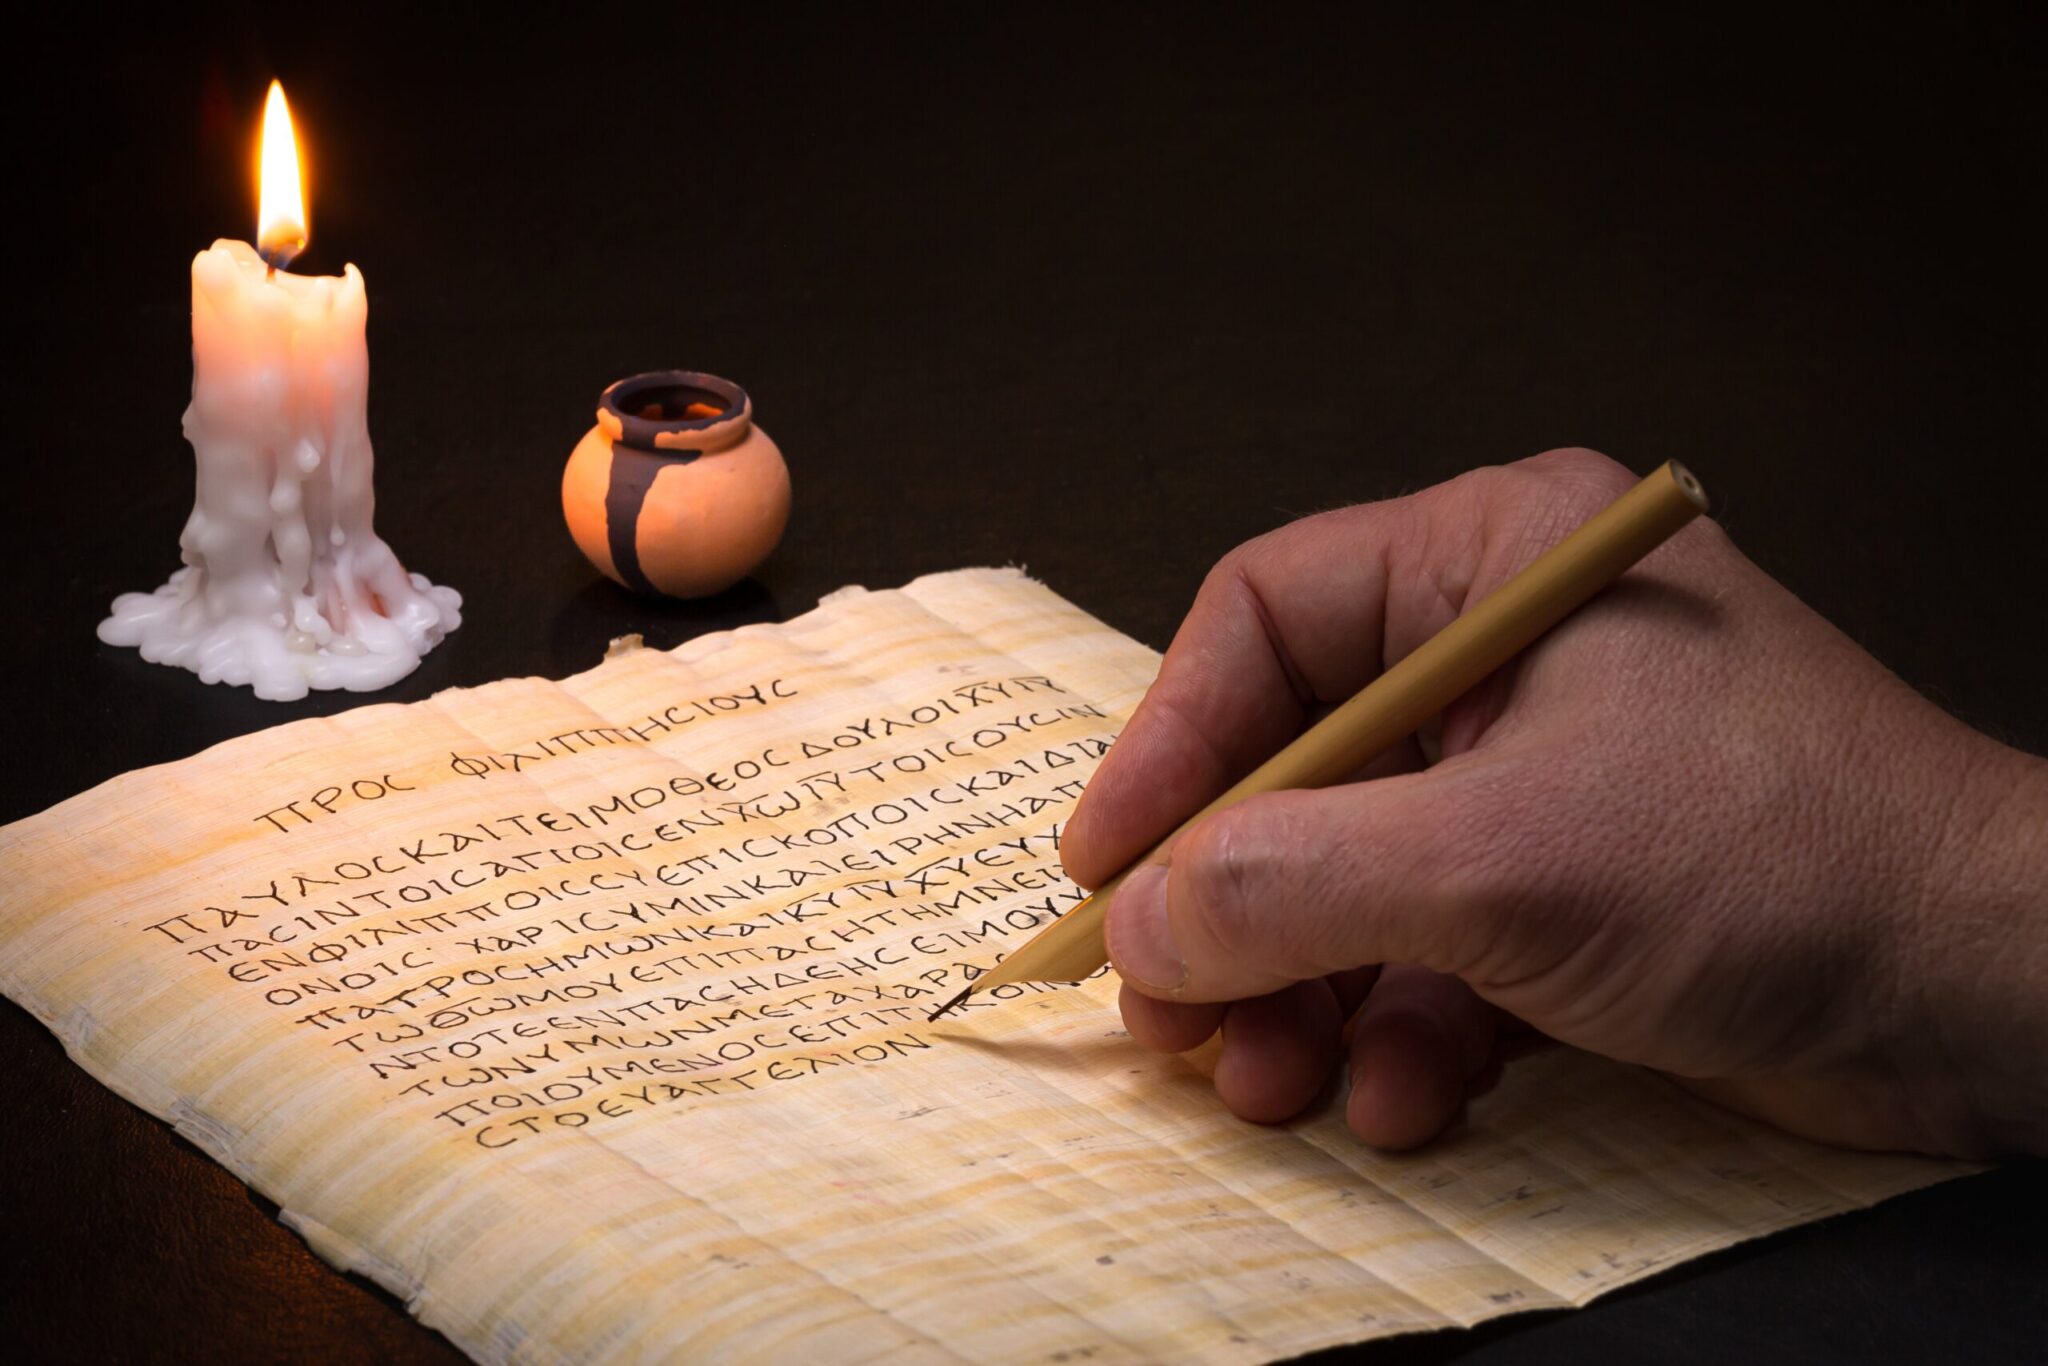 ΠΡΟϹ ΦΙΛΙΠΠΗϹΙΟΥϹ
ΠΑΥΛΟϹΚΑΙΤΕΙΜΟΘΕΟϹΔΟΥΛΟΙΧ̅Υ̅Ι̅Υ̅
ΠΑϹΙΝΤΟΙϹΑΓΙΟΙϹΕΝΧ̅Ω̅Ι̅Υ̅ΤΟΙϹΟΥϹΙΝ
ΕΝΦΙΛΙΠΠΟΙϹϹΥΕΠΙϹΚΟΠΟΙϹΚΑΙΔΙΑ
ΟΝΟΙϹ· ΧΑΡΙϹΥΜΙΝΚΑΙΕΙΡΗΝΗΑΠ
ΠΑΤΡΟϹΗΜΩΝΚΑΙΚ̅Υ̅Ι̅Υ̅Χ̅Υ̅ΕΥΧ
ΤΩΘ̅Ω̅ΜΟΥΕΠΙΠΑϹΗΤΗΜΝΕΙ
ΝΤΟΤΕΕΝΠΑϹΗΔΕΗϹΕΙΜΟΥΥ
ΤΩΝΥΜΩΝΜΕΤΑΧΑΡΑϹ
ΠΟΙΟΥΜΕΝΟϹΕΠΙΤΗΚΟΙΝ
ϹΤΟΕΥΑΓΓΕΛΙΟΝ